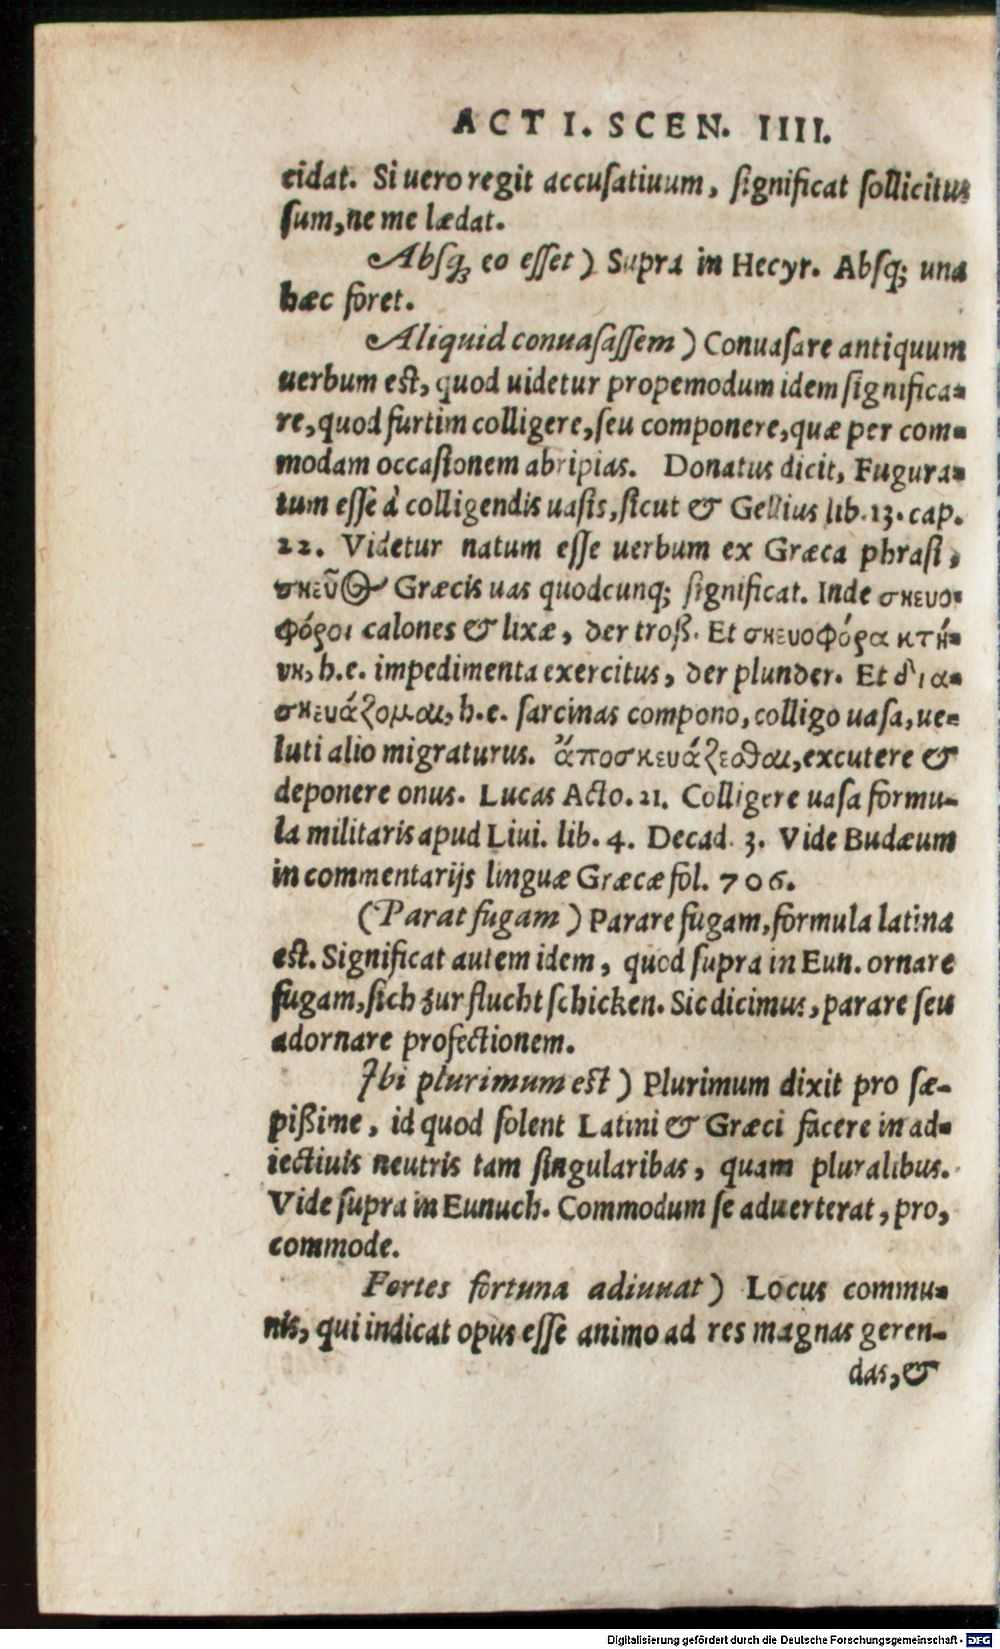 ACT I. SCEN. IIII.
cidat. Si uero regit accuſatiuum, ſignificat ſollicitus
ſum, ne me lædat.
Abſq; eo eſſet) Supra in Hecyr. Abſq; una
hæc foret.
Aliquid conuaſaſſem) Conuaſare antiquum
uerbum eſt, quod uidetur propemodum idem ſignifica-
re, quod furtim colligere, ſeu componere, quæ per com-
modam occaſionem abripias. Donatus dicit, Fugura-
tum eſſe à colligendis uaſis, ſicut & Gellius lib. 13. cap.
22. Videtur natum eſſe uerbum ex Græca phraſi,
σκεῦος Græcis uas quodcunq; ſignificat. Inde σκευο-
φόροι calones & lixæ, der troß. Et σκευοφόρα κτή-
νη, h.e. impedimenta exercitus, der plunder. Et δια-
σκευάζομαι, h.e. ſarcinas compono, colligo uaſa, ue-
luti alio migraturus. ἄποσκευάζεσθαι, excutere &
deponere onus. Lucas Acto. 21. Colligere uaſa formu-
la militaris apud Liui. lib. 4. Decad. 3. Vide Budæum
in commentarijs linguæ Græcæ fol. 706.
(Parat fugam) Parare fugam, formula latina
eſt. Significat autem idem, quod ſupra in Eun. ornare
fugam, ſich zur flucht ſchicken. Sic dicimus, parare ſeu
adornare profectionem.
Ibi plurimum eſt) Plurimum dixit pro ſæ-
pißime, id quod ſolent Latini & Græci facere in ad-
iectiuis neutris tam ſingularibas, quam pluralibus.
Vide ſupra in Eunuch. Commodum ſe aduerterat, pro,
commode.
Fortes fortuna adiuuat) Locus commu-
nis, qui indicat opus eſſe animo ad res magnas geren-
das, &
Digitalisierung gefördert durch die Deutsche Forschungsgemeinschaft - DFG